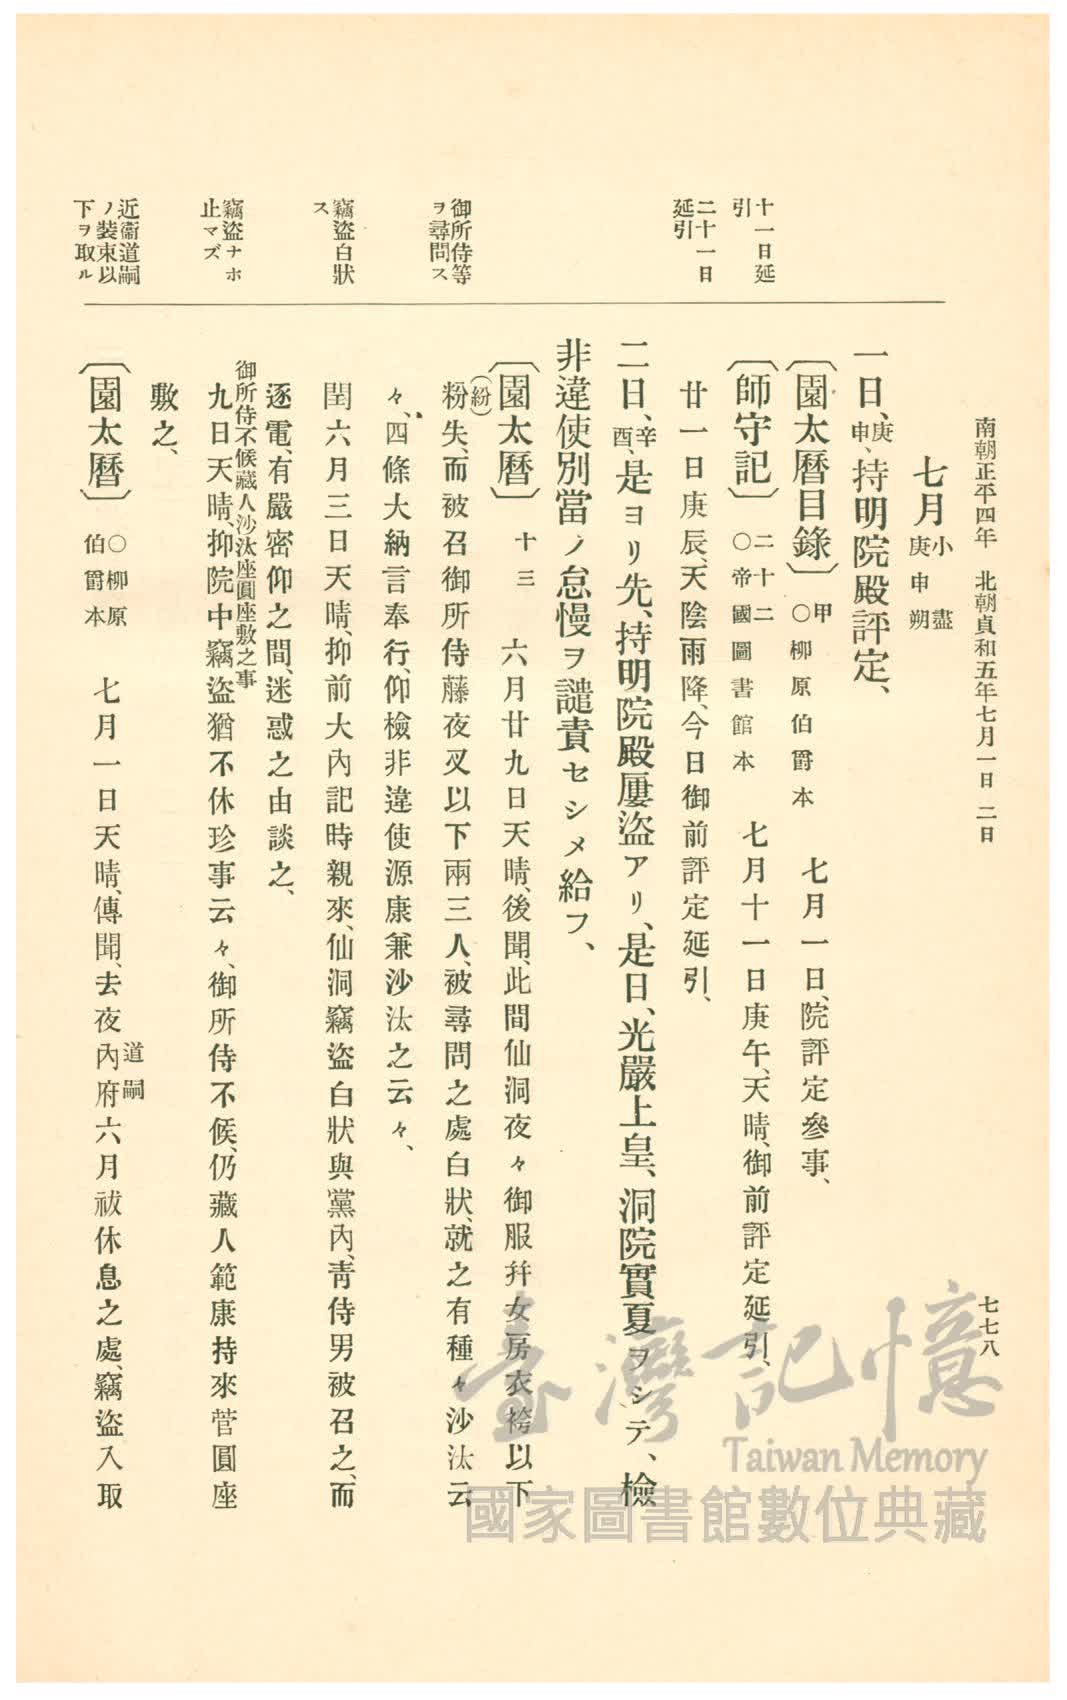 南朝正平四年　北朝貞和五年七月一日　二日
七七八
十一日延
引
二十一日
延引
御所侍等
ヲ尋問ス
竊盜白狀
ス
竊盜ナホ
止マズ
近衞道嗣
ノ裝束以
下ヲ取ル
七月 小盡 庚申朔
一日、庚申、持明院殿評定、
〔園太曆目錄〕 甲 ○柳原伯爵本　七月一日、院評定參事、
〔師守記〕 二十二 ○帝國圖書館本　七月十一日庚午、天晴、御前評定延引、
廿一日庚辰、天陰雨降、今日御前評定延引、
二日、辛酉、是ヨリ先、持明院殿屢盜アリ、是日、光嚴上皇、洞院實夏ヲシテ、檢
非違使別當ノ怠慢ヲ譴責セシメ給フ、
〔園太曆〕 十三　六月廿九日天晴、後聞、此間仙洞夜々御服幷女房衣袴以下
(紛)
粉失、而被召御所侍藤夜叉以下兩三人、被尋問之處白狀、就之有種々沙汰云
々、四條大納言奉行、仰檢非違使源康兼沙汰之云々、
閏六月三日天晴、抑前大內記時親來、仙洞竊盜白狀與黨內、靑侍男被召之、而
逐電、有嚴密仰之間、迷惑之由談之、
御所侍不候藏人沙汰座圓座敷之事
九日天晴、抑院中竊盜猶不休珍事云々、御所侍不候、仍藏人範康持來菅圓座
敷之、
〔園太曆〕 ○柳原伯爵本　七月一日天晴、傳聞、去夜內府六月祓休息之處、竊盜入取
道嗣
臺灣記憶
Taiwan Memory
國家圖書館數位典藏